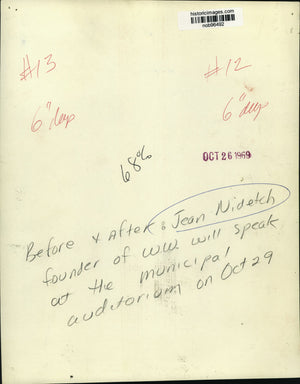 historicimages.com
nob96492
#13
#12
6" deep
6" deep
68%
OCT 26 1969
Before & After: Jean Nidetch
founder of WW will speak
at the municipal
auditorium on Oct 29